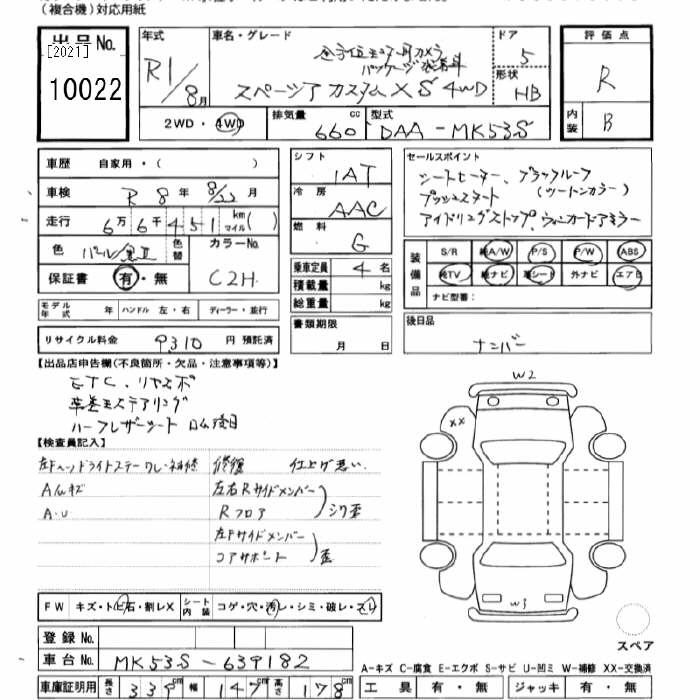 (複合機)対応用紙
出品No.
[2021]
10022
年式
R1/8月
車名・グレード
全方位モニター用カメラ
パッケージ装着車
スペーシア カスタムXS 4WD
ドア
5
形状
HB
評価点
R
内装
B
2WD・4WD
排気量
660cc
型式
DAA-MK53S
車歴 自家用・( )
車検 R 8年 8/22月
走行 6万6千451 km マイル( )
色 パール/黒II
色替
カラーNo.
C2H
保証書 有・無
シフト
1AT
冷房
AAC
燃料
G
乗車定員 4名
積載量 kg
総重量 kg
セールスポイント
シートヒーター、ブラックルーフ
プッシュスタート (ツートンカラー)
アイドリングストップ、ウィンカードアミラー
装備品
S/R 純A/W P/S P/W ABS
純TV 純ナビ 革シート 外ナビ エアB
ナビ型番:
モデル年式 ハンドル 左・右 ディーラー・並行
リサイクル料金 9310 円 預託済
書類期限
月 日
後日品
ナンバー
【出品店申告欄(不良箇所・欠品・注意事項等)】
ETC、リヤスポ
革巻きステアリング
ハーフレザーシート
【検査員記入】
左Fヘッドライトステーワレ・補修
Aルキズ
A・U
修復 仕上げ悪い
左右Rサイドメンバー
Rフロア
シワ歪
左Fサイドメンバー
コアサポート
歪
W2
XX
W3
スペア
FW キズ・ト ビ石・割レX
シート内装 コゲ・穴・汚レ・シミ・破レ・スレ
登録No.
車台No. MK53S-639182
車庫証明用 長さ 339cm 幅 147cm 高さ 178cm
A-キズ C-腐食 E-エクボ S-サビ U-凹ミ W-補修 XX-交換済
工具 有・無 ジャッキ 有・無